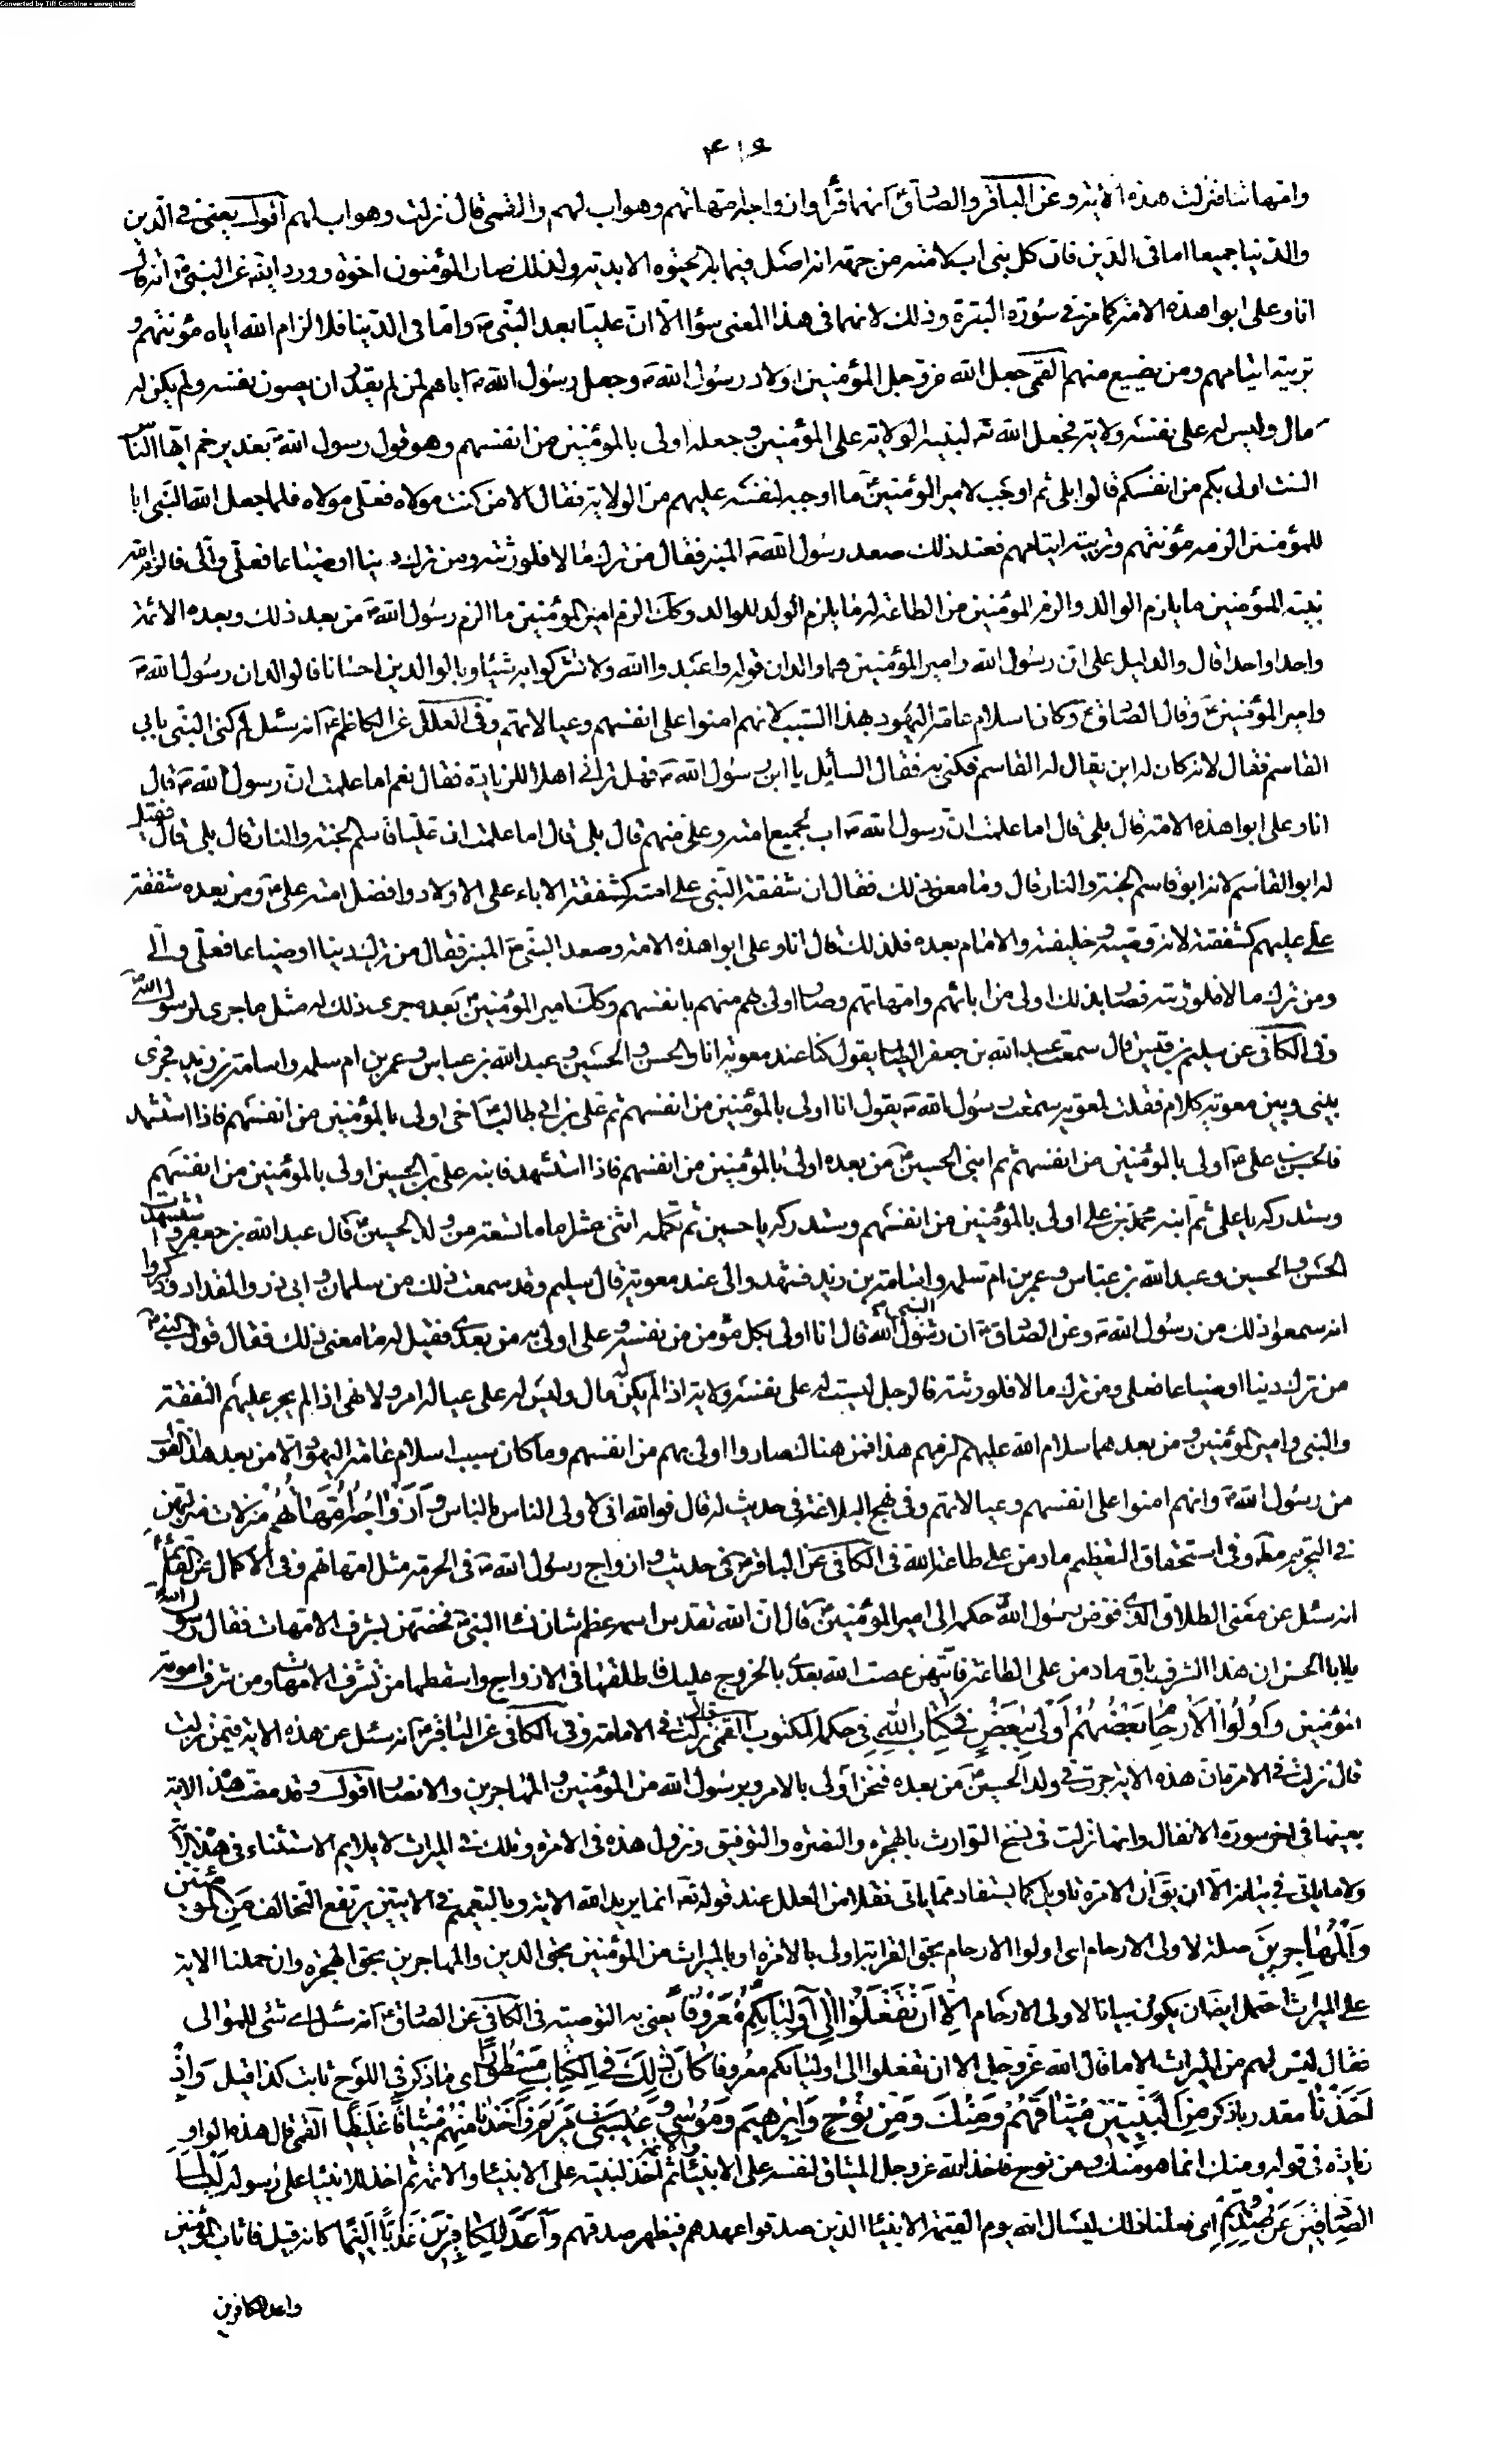 Converted by Tiff Combine - unregistered
۴۱۶
وامهاتنا فنزلت هذه الاية وعن الباقر والصادقؑ انهما قرأا وازواجه امهاتهم وهو اب لهم والقمي قال نزلت وهو اب لهم اقول يعني في الدين
والدنيا جميعا اما في الدين فان كل نبي اب لامته من جهة انه اصل فيما به الحيوة الابدية ولذلك صار المؤمنون اخوة وورد ايضا عن النبيؐ انه قال
انا وعلي ابوا هذه الامة كما مر في سورة البقرة وذلك لانهما في هذا المعنى سواء الا ان عليا بعد النبيؐ واما في الدنيا فلا لزام الله اياه مؤنتهم و
تربية ايتامهم ومن يضيع منهم القمي جعل الله عز وجل المؤمنين اولاد رسول اللهؐ وجعل رسول اللهؐ اباهم لمن لم يقدر ان يصون نفسه ولم يكن له
مال وليس له على نفسه ولاية فجعل الله تع لنبيه الولاية على المؤمنين وجعله اولى بالمؤمنين من انفسهم وهو قول رسول اللهؐ بغدير خم ايها الناس
الست اولى بكم من انفسكم قالوا بلى ثم اوجب لامير المؤمنينؑ ما اوجبه لنفسه عليهم من الولاية فقال الا من كنت مولاه فعلي مولاه فلما جعل الله النبي ابا
للمؤمنين الزمه مؤنتهم وتربية ايتامهم فعند ذلك صعد رسول اللهؐ المنبر فقال من ترك مالا فلورثته ومن ترك دينا او ضياعا فعلي والي فالزم الله
نبيه للمؤمنين ما يلزم الوالد والزم المؤمنين من الطاعة له ما يلزم الولد للوالد وكك الزم امير المؤمنين ما الزم رسول اللهؐ من بعد ذلك وبعده الائمة
واحدا واحدا قال والدليل على ان رسول الله وامير المؤمنين هما والدان قوله واعبدوا الله ولا تشركوا به شيئا وبالوالدين احسانا فالوالدان رسول اللهؐ
وامير المؤمنينؑ وقال الصادقؑ وكان اسلام عامة اليهود بهذا السبب لانهم امنوا على انفسهم وعيالاتهم وفي العلل عن الكاظمؑ انه سئل لم كني النبي بابي
القاسم فقال لانه كان له ابن يقال له القاسم فكني به فقال السائل يا ابن رسول اللهؐ فهل تراني اهلا للزيادة فقال نعم اما علمت ان رسول اللهؐ قال
انا وعلي ابوا هذه الامة قال بلى قال اما علمت ان رسول اللهؐ اب لجميع امته وعلي منهم قال بلى قال اما علمت ان عليا قاسم الجنة والنار قال بلى قال فقيل
له ابو القاسم لانه ابو قاسم الجنة والنار قال وما معنى ذلك فقال ان شفقة النبي على امته كشفقة الاباء على الاولاد وافضل امته عليؑ ومن بعده شفقة
علي عليهم كشفقته لانه وصيه وخليفته والامام بعده فلذلك قال انا وعلي ابوا هذه الامة وصعد النبيؐ المنبر فقال من ترك دينا او ضياعا فعلي والي
ومن ترك مالا فلورثته فصار بذلك اولى من ابائهم وامهاتهم وصار اولى بهم منهم بانفسهم وكك امير المؤمنينؑ بعده جرى ذلك له مثل ما جرى لرسول اللهؐ
وفي الكافي عن سليم بن قيس قال سمعت عبد الله بن جعفر الطيار يقول كنا عند معوية انا والحسن والحسين وعبد الله بن عباس وعمر بن ام سلمة واسامة بن زيد فجرى
بيني وبين معوية كلام فقلت لمعوية سمعت رسول اللهؐ يقول انا اولى بالمؤمنين من انفسهم ثم علي بن ابي طالبؑ اخي اولى بالمؤمنين من انفسهم فاذا استشهد
فالحسن بن عليؑ اولى بالمؤمنين من انفسهم ثم ابني الحسينؑ من بعده اولى بالمؤمنين من انفسهم فاذا استشهد فابنه علي بن الحسين اولى بالمؤمنين من انفسهم
وستدركه يا علي ثم ابنه محمد بن علي اولى بالمؤمنين من انفسهم وستدركه يا حسين ثم تكملة اثنى عشر اماما تسعة من ولد الحسينؑ قال عبد الله بن جعفر واستشهدت
الحسن والحسين وعبد الله بن عباس وعمر بن ام سلمة واسامة بن زيد فشهدوا لي عند معوية قال سليم وقد سمعت ذلك من سلمان وابي ذر والمقداد وذكروا
انهم سمعوا ذلك من رسول اللهؐ وعن الصادقؑ ان النبيؐ قال انا اولى بكل مؤمن من نفسه وعلي اولى به من بعدي فقيل له ما معنى ذلك فقال قول النبيؐ
من ترك دينا او ضياعا فعلي ومن ترك مالا فلورثته فالرجل ليست له على نفسه ولاية اذا لم يكن له مال وليس له على عياله امر ولا نهي اذا لم يجر عليهم النفقة
والنبي وامير المؤمنين ومن بعدهما سلام الله عليهم الزمهم هذا فمن هنالك صاروا اولى بهم من انفسهم وما كان سبب اسلام عامة اليهود الا من بعد هذا القول
من رسول اللهؐ وانهم امنوا على انفسهم وعيالاتهم وفي نهج البلاغة في حديث له قال فوالله اني لاولى الناس بالناس وَاَزْوَاجُهُ اُمَّهَاتُهُمْ منزلات منزلتهن
في التحريم مطلقا وفي استحقاق التعظيم ما دمن على طاعة الله في الكافي عن الباقرؑ في حديث وازواج رسول اللهؐ في الحرمة مثل امهاتهم وفي الاكمال عن القائمؑ
انه سئل عن معنى الطلاق الذي فوض رسول اللهؐ حكمه الى امير المؤمنينؑ قال ان الله تقدس اسمه عظم شان نساء النبيؐ فخصهن بشرف الامهات فقال رسول اللهؐ
يا ابا الحسن ان هذا الشرف باق ما دمن على الطاعة فايتهن عصت الله بعدي بالخروج عليك فاطلقها في الازواج واسقطها من شرف الامهات ومن شرف امومة
المؤمنين وَاُولُوا الْاَرْحَامِ بَعْضُهُمْ اَوْلٰى بِبَعْضٍ فِي كِتَابِ اللهِ في حكمه المكتوب القمي قال نزلت في الامامة وفي الكافي عن الباقرؑ انه سئل عن هذه الاية فيمن نزلت
قال نزلت في الامرة ان هذه الاية جرت في ولد الحسينؑ من بعده فنحن اولى بالامر وبرسول الله من المؤمنين والمهاجرين والانصار اقول وقد مضت هذه الاية
بعينها في اخر سورة الانفال وانها نزلت في نسخ التوارث بالهجرة والنصرة والتوفيق ونزول هذه في الامرة وتلك في الميراث لا يلايم الاستثناء في هذه الا
ولا ما ياتي في بيانه الا ان يق ان الامرة تاويل كما يستفاد مما ياتي نقلا من العلل عند قوله تع انما يريد الله الاية وبالتعميم في الايتين يرتفع التخالف مِنَ الْمُؤْمِنِينَ
وَالْمُهَاجِرِينَ صلة لاولي الارحام اى اولوا الارحام بحق القرابة اولى بالامرة او بالميراث من المؤمنين بحق الدين والمهاجرين بحق الهجرة وان حملنا الاية
على الميراث احتمل ايضا ان يكون بيانا لاولي الارحام اِلَّا اَنْ تَفْعَلُوا اِلٰى اَوْلِيَائِكُمْ مَعْرُوفًا يعني به الوصية في الكافي عن الصادقؑ انه سئل اى شئ للموالي
فقال ليس لهم من الميراث الا ما قال الله عز وجل الا ان تفعلوا الى اوليائكم معروفا كَانَ ذٰلِكَ فِي الْكِتَابِ مَسْطُورًا اى ما ذكر في اللوح ثابت كذا قيل وَاِذْ
اَخَذْنَا مقدر باذكر مِنَ النَّبِيِّينَ مِيثَاقَهُمْ وَمِنْكَ وَمِنْ نُوحٍ وَاِبْرٰهِيمَ وَمُوسٰى وَعِيسَى بْنِ مَرْيَمَ وَاَخَذْنَا مِنْهُمْ مِيثَاقًا غَلِيظًا القمي قال هذه الواو
زيادة في قوله ومنك انما هو منك ومن نوح فاخذ الله عز وجل الميثاق لنفسه على الانبياء ثم اخذ لنبيه على الانبياء والائمة ثم اخذ للانبياء على رسوله لِيَسْئَلَ
الصَّادِقِينَ عَنْ صِدْقِهِمْ اى فعلنا ذلك ليسال الله يوم القيمة الانبياء الذين صدقوا عهدهم فيظهر صدقهم وَاَعَدَّ لِلْكَافِرِينَ عَذَابًا اَلِيمًا كانه قيل فاثاب المؤمنين
واعد للكافرين